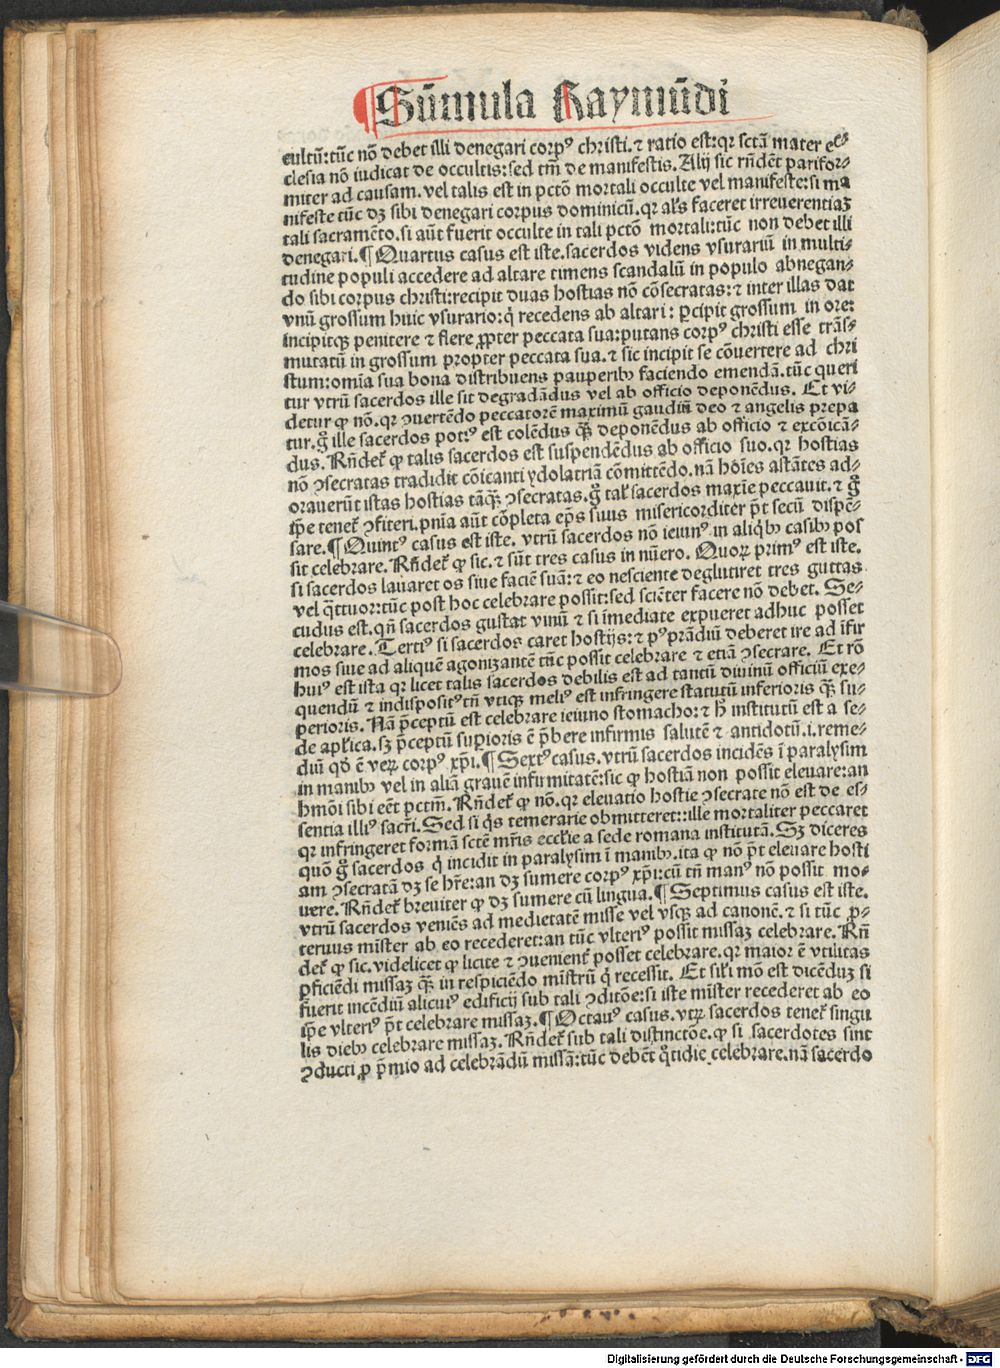 ¶ Sūmula Raymūdi
cultū:tūc nō debet illi denegari corpꝰ christi.⁊ ratio est:qꝛ sctā mater ec⸗
clesia nō iudicat de occultis:sed tm̄ de manifestis. Alij sic rn̄dēt parifor⸗
miter ad causam. vel talis est in pctō mortali occulte vel manifeste:si ma
nifeste tūc dꝫ sibi denegari corpus dominicū.qꝛ al̓s faceret irreuerentiaꝫ
tali sacramēto.si aūt fuerit occulte in tali pctō mortali:tūc non debet illi
denegari.¶ Quartus casus est iste.sacerdos videns vsurariū in multi⸗
tudine populi accedere ad altare timens scandalū in populo abnegan⸗
do sibi corpus christi:recipit duas hostias nō cōsecratas:⁊ inter illas dat
vnū grossum huic vsurario:q̇ recedens ab altari: ꝑcipit grossum in ore:
incipitqꝫ penitere ⁊ flere ꝓpter peccata sua:putans corpꝰ christi esse trās⸗
mutatū in grossum propter peccata sua.⁊ sic incipit se cōuertere ad chri
stum:omīa sua bona distribuens pauperibꝰ faciendo emendā.tūc queri
tur vtrū sacerdos ille sit degradādus vel ab officio deponēdus. Et vi⸗
detur ꝙ nō.qꝛ ꝯuertēdo peccatorē maximū gaudiū deo ⁊ angelis prepa
tur.g̊ ille sacerdos potꝰ est colēdus q̄ꝫ deponēdus ab officio ⁊ excōicā⸗
dus. Rn̄det̉ ꝙ talis sacerdos est suspendēdus ab officio suo.qꝛ hostias
nō ꝯsecratas tradidit cōicanti ydolatriā cōmittēdo.nā hōies astātes ad⸗
orauerūt istas hostias tāq̄ꝫ ꝯsecratas.g̊ tal̓ sacerdos maxīe peccauit.⁊ g̊
ip̄e tenet̉ ꝯfiteri.pnīa aūt cōpleta ep̄s suus misericorditer pōt secū dispē⸗
sare.¶ Quintꝰ casus est iste. vtrū sacerdos nō ieiunꝰ in aliq̇bꝰ casibꝰ pos
sit celebrare. Rn̄det̉ ꝙ sic.⁊ sūt tres casus in nūero. Quoꝝ primꝰ est iste.
si sacerdos lauaret os siue faciē suā:⁊ eo nesciente deglutiret tres guttas
vel q̄ttuor:tūc post hoc celebrare possit:sed sciēter facere nō debet. Se⸗
cūdus est.qn̄ sacerdos gustat vinū ⁊ si imediate expueret adhuc posset
celebrare. Tertiꝰ si sacerdos caret hostijs:⁊ pꝰ prādiū deberet ire ad īfir
mos siue ad aliquē agonizantē tūc possit celebrare ⁊ etiā ꝯsecrare. Et rō
huiꝰ est ista qꝛ licet talis sacerdos debilis est ad tantū diuinū officiū exe⸗
quendū ⁊ indispositꝰ tn̄ vtiqꝫ meliꝰ est infringere statutū inferioris q̄ꝫ su⸗
perioris. Nā p̄ceptū est celebrare ieiuno stomacho:⁊ h̄ institutū est a se⸗
de apl̓ica.sꝫ p̄ceptū supioris ē p̄bere infirmis salutē ⁊ antidotū.i.reme⸗
diū qd̓ ē veꝝ corpꝰ xp̄i.¶ Sextꝰ casus. vtrū sacerdos incidēs ī paralysim
in manibꝰ vel in aliā grauē infirmitatē:sic ꝙ hostiā non possit eleuare:an
hmōi sibi eēt pctm̄. Rn̄det̉ ꝙ nō.qꝛ eleuatio hostie ꝯsecrate nō est de es⸗
sentia illiꝰ sacrī. Sed si q̇s temerarie obmitteret::ille mortaliter peccaret
qꝛ infringeret formā sctē mr̄is eccl̓ie a sede romana institutā. Sꝫ diceres
quō g̊ sacerdos q̇ incidit in paralysim ī manibꝰ.ita ꝙ nō pōt eleuare hosti
am ꝯsecratā dꝫ se hr̄e:an dꝫ sumere corpꝰ xp̄i:cū tn̄ manꝰ nō possit mo⸗
uere. Rn̄det̉ breuiter ꝙ dꝫ sumere cū lingua.¶ Septimus casus est iste.
vtrū sacerdos veniēs ad medietatē misse vel vsqꝫ ad canonē.⁊ si tūc ꝓ⸗
teruus mīster ab eo recederet:an tūc vlteriꝰ possit missaꝫ celebrare. Rn̄
det̉ ꝙ sic.videlicet ꝙ licite ⁊ ꝯuenient̉ posset celebrare.qꝛ maior ē vtilitas
ꝑficiēdi missaꝫ q̄ꝫ in respiciēdo mīstrū q̇ recessit. Et sil̓i mō est dicēduꝫ si
fuerit incēdiū alicuiꝰ edificij sub tali ꝯditōe:si iste mīster recederet ab eo
ip̄e vlteriꝰ pōt celebrare missaꝫ.¶ Octauꝰ casus. vtꝝ sacerdos tenet̉ singu
lis diebꝰ celebrare missaꝫ. Rn̄det̉ sub tali distinctōe.ꝙ si sacerdotes sint
ꝯducti ꝓ p̄mio ad celebrādū missā:tūc debēt q̊tidie celebrare.nā sacerdo
Digitalisierung gefördert durch die Deutsche Forschungsgemeinschaft - DFG